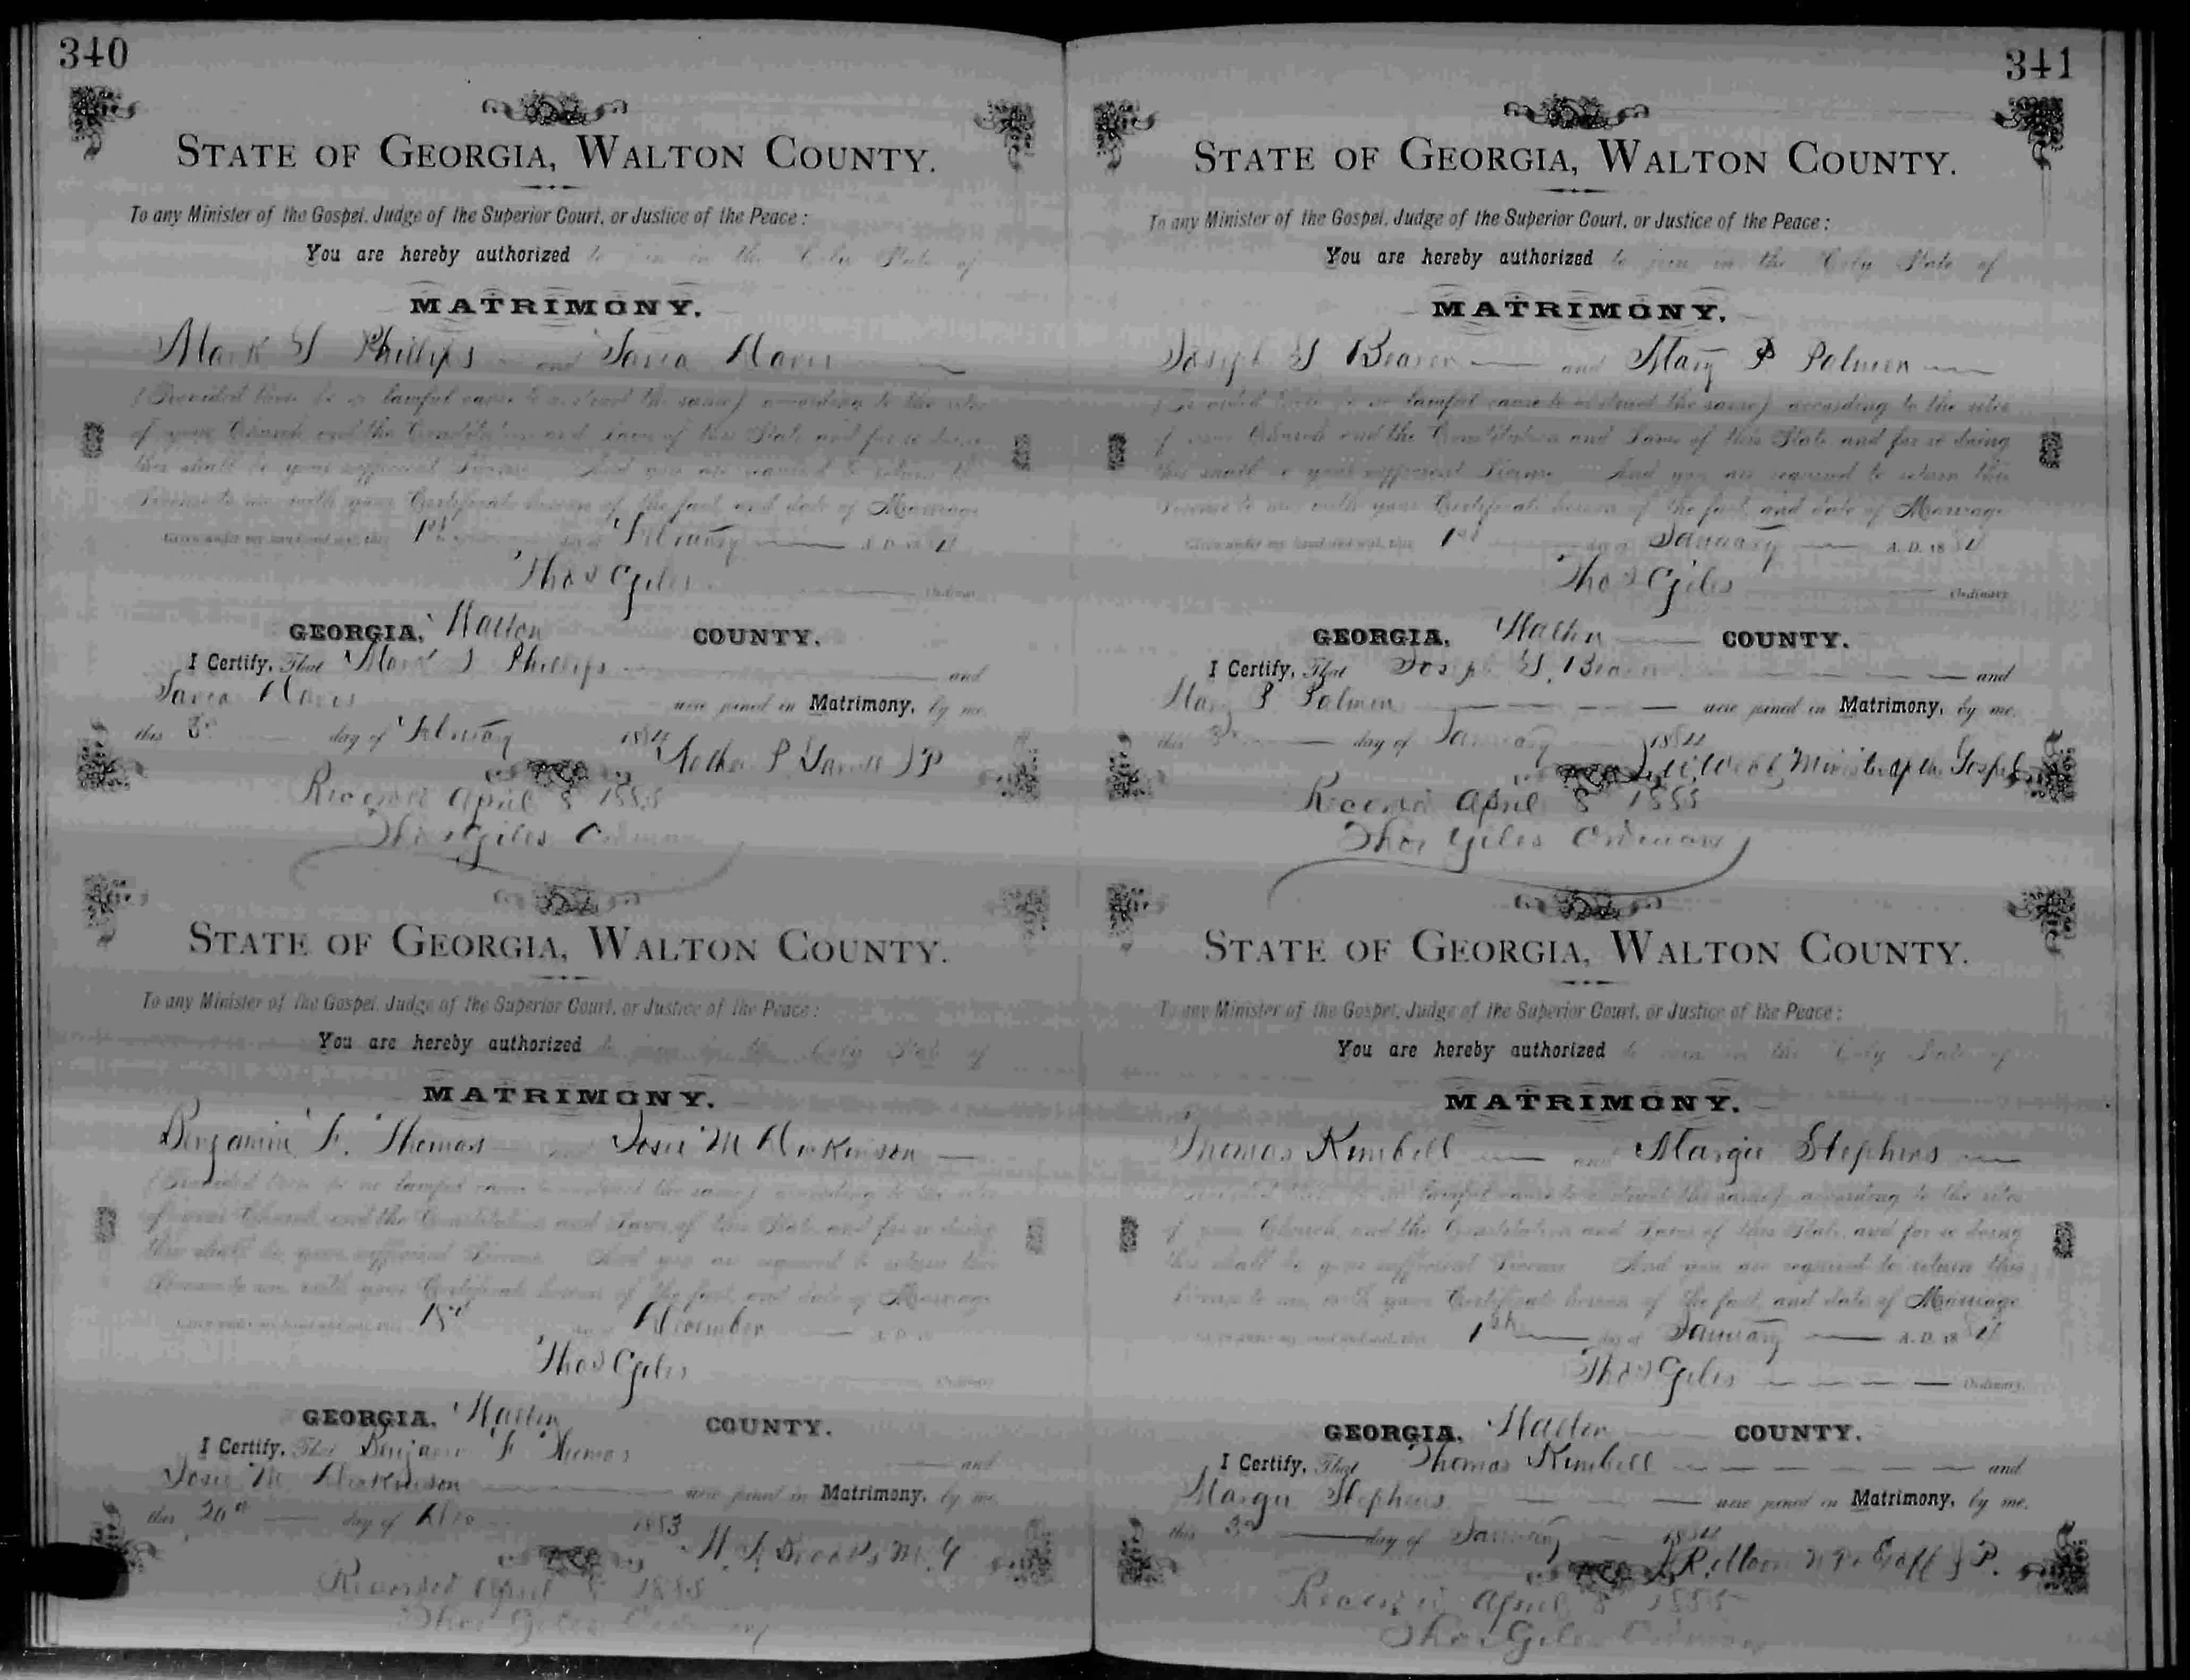 340
STATE OF GEORGIA, WALTON COUNTY.
To any Minister of the Gospel, Judge of the Superior Court, or Justice of the Peace:
You are hereby authorized to join in the Holy State of
MATRIMONY.
Mark S Phillips and
(Provided there be no lawful cause to obstruct the same) according to the rites
of your Church and the Constitution and Laws of this State and for so doing
this shall be your sufficient License And you are required to return this
License to me with your Certificate hereon of the fact and date of Marriage
Given under my hand and seal, this 1st day of February A. D. 18
Thos Giles Ordinary
GEORGIA, Walton COUNTY.
I Certify, That Mark S Phillips and
were joined in Matrimony, by me
this day of February 1884 J P
Recorded April 8 1885
Thos Giles Ordinary
STATE OF GEORGIA, WALTON COUNTY.
To any Minister of the Gospel, Judge of the Superior Court, or Justice of the Peace:
You are hereby authorized to join in the Holy State of
MATRIMONY.
Benjamin F. Thomas and Josie M Dickinson
(Provided there be no lawful cause to obstruct the same) according to the rites
of your Church and the Constitution and Laws of this State and for so doing
this shall be your sufficient License And you are required to return this
License to me with your Certificate hereon of the fact and date of Marriage
Given under my hand and seal, this day of December A. D. 18
Thos Giles Ordinary
GEORGIA, Walton COUNTY.
I Certify, That Benjamin F Thomas and
Josie M Dickinson were joined in Matrimony, by me
this 20th day of Dec 1883 M. G
Recorded April 8 1885
Thos Giles Ordinary
341
STATE OF GEORGIA, WALTON COUNTY.
To any Minister of the Gospel, Judge of the Superior Court, or Justice of the Peace:
You are hereby authorized to join in the Holy State of
MATRIMONY.
Joseph S and Mary P Palmer
(Provided there be no lawful cause to obstruct the same) according to the rites
of your Church and the Constitution and Laws of this State and for so doing
this shall be your sufficient License And you are required to return this
License to me with your Certificate hereon of the fact and date of Marriage
Given under my hand and seal, this 1st day of January A. D. 1884
Thos Giles Ordinary
GEORGIA, Walton COUNTY.
I Certify, That Joseph S. and
Mary P Palmer were joined in Matrimony, by me.
this 3rd day of January 1884 Minister of the Gospel
Recorded April 8 1885
Thos Giles Ordinary
STATE OF GEORGIA, WALTON COUNTY.
To any Minister of the Gospel, Judge of the Superior Court, or Justice of the Peace:
You are hereby authorized to join in the Holy State of
MATRIMONY.
Thomas Kimbell and Margie Stephens
(Provided there be no lawful cause to obstruct the same) according to the rites
of your Church and the Constitution and Laws of this State and for so doing
this shall be your sufficient License And you are required to return this
License to me with your Certificate hereon of the fact and date of Marriage
Given under my hand and seal, this day of January A. D. 1884
Thos Giles Ordinary
GEORGIA, Walton COUNTY.
I Certify, That Thomas Kimbell and
Margie Stephens were joined in Matrimony, by me.
this 3rd day of January 1884 J P.
Recorded April 8 1885
Thos Giles Ordinary